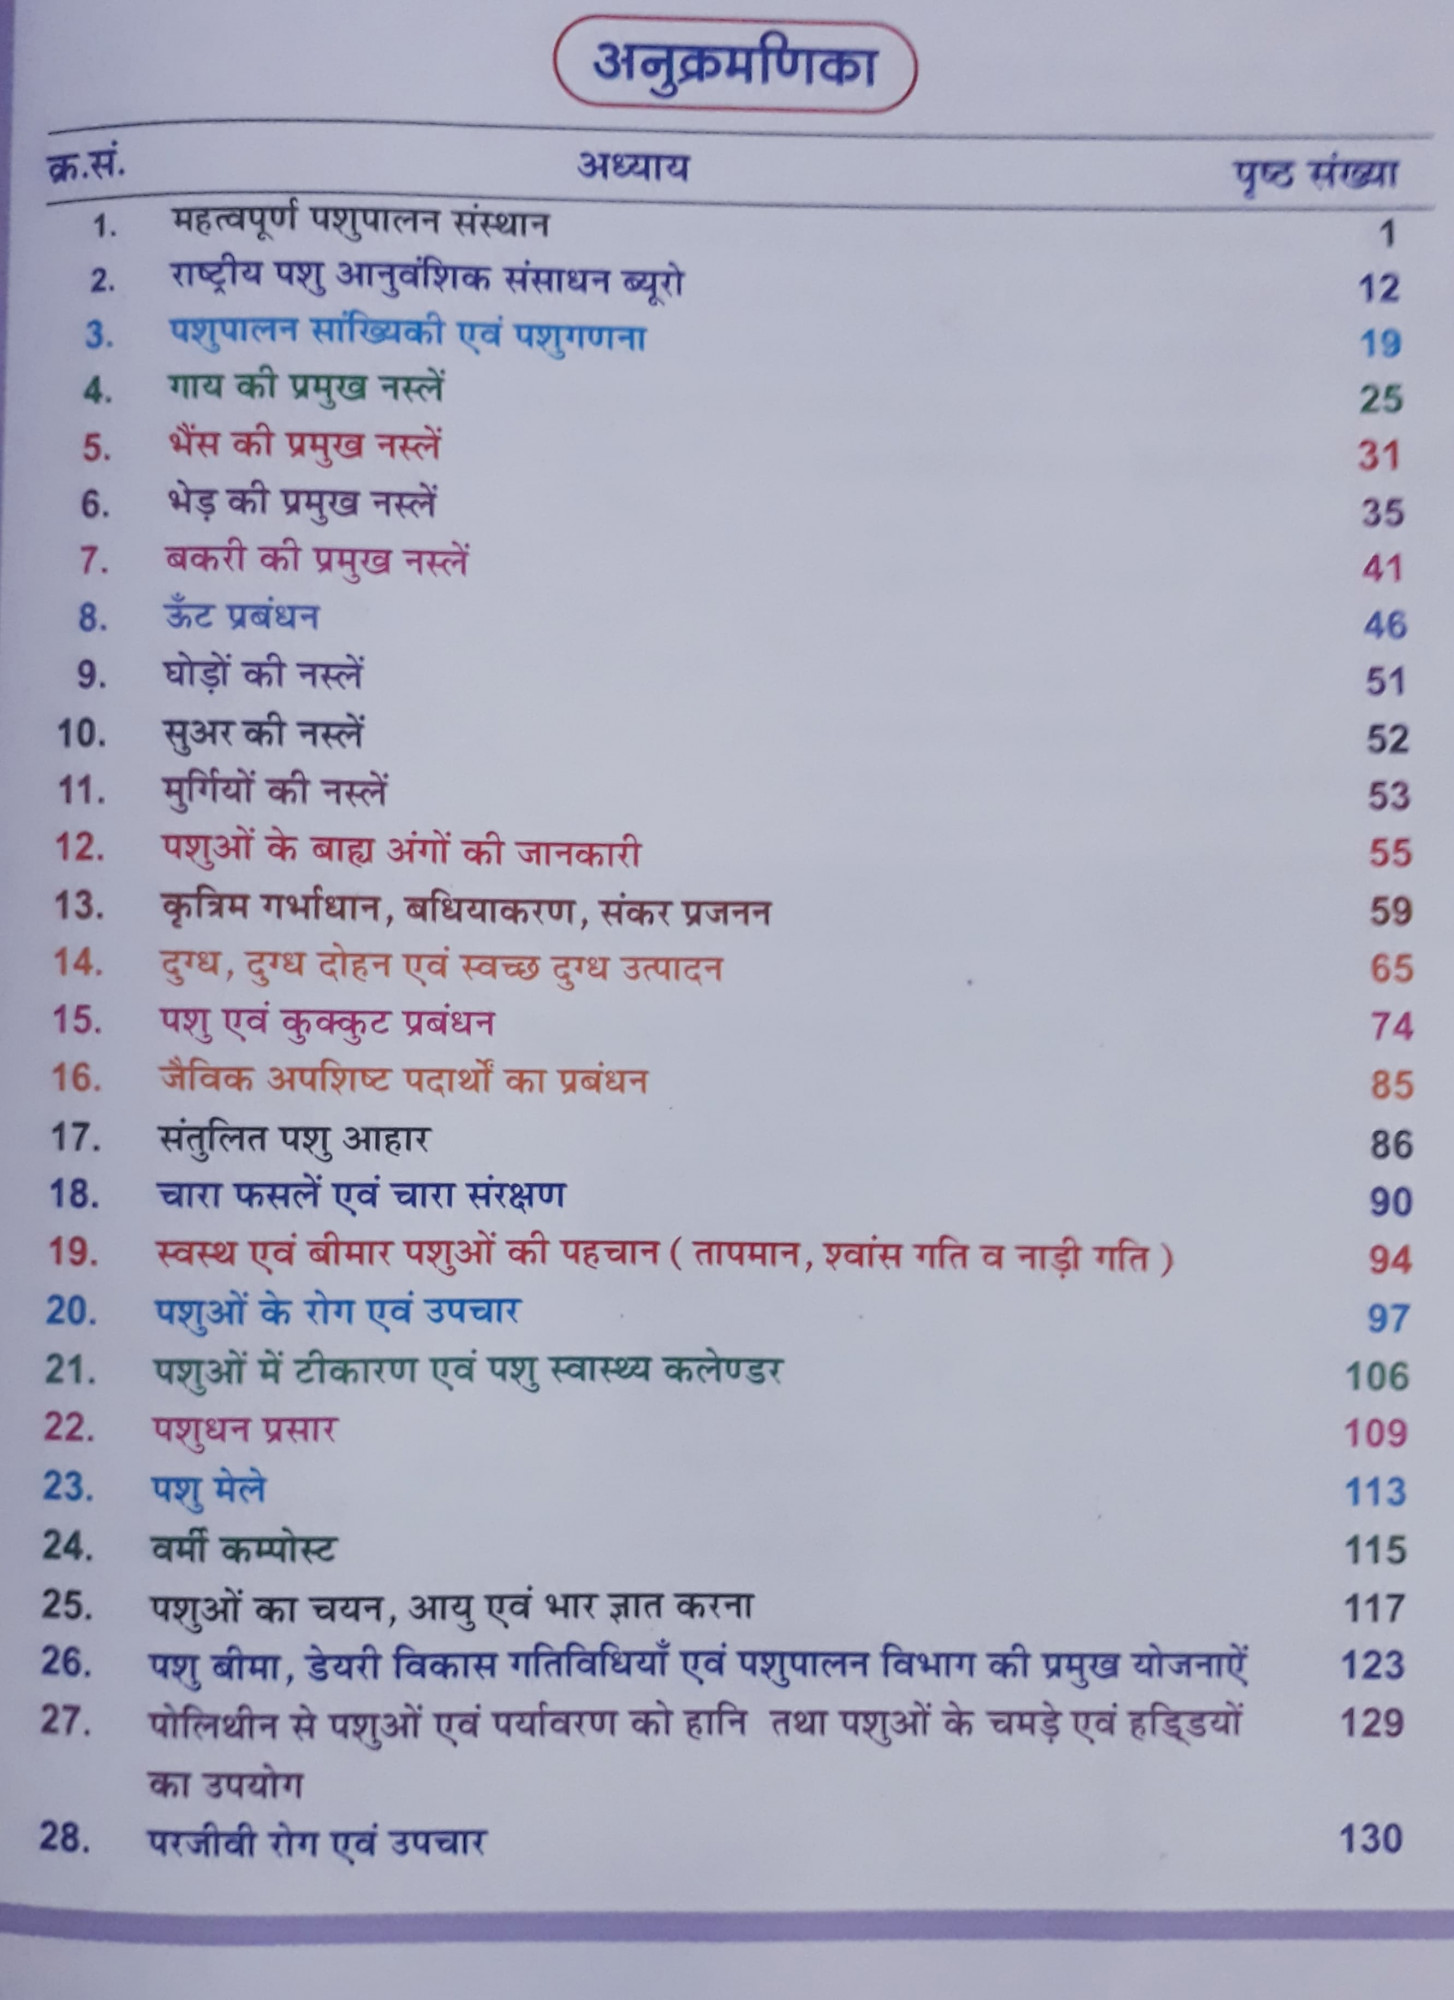 अनुक्रमणिका
क्र.सं. अध्याय पृष्ठ संख्या
1. महत्वपूर्ण पशुपालन संस्थान 1
2. राष्ट्रीय पशु आनुवंशिक संसाधन ब्यूरो 12
3. पशुपालन सांख्यिकी एवं पशुगणना 19
4. गाय की प्रमुख नस्लें 25
5. भैंस की प्रमुख नस्लें 31
6. भेड़ की प्रमुख नस्लें 35
7. बकरी की प्रमुख नस्लें 41
8. ऊँट प्रबंधन 46
9. घोड़ों की नस्लें 51
10. सुअर की नस्लें 52
11. मुर्गियों की नस्लें 53
12. पशुओं के बाह्य अंगों की जानकारी 55
13. कृत्रिम गर्भाधान, बधियाकरण, संकर प्रजनन 59
14. दुग्ध, दुग्ध दोहन एवं स्वच्छ दुग्ध उत्पादन 65
15. पशु एवं कुक्कुट प्रबंधन 74
16. जैविक अपशिष्ट पदार्थों का प्रबंधन 85
17. संतुलित पशु आहार 86
18. चारा फसलें एवं चारा संरक्षण 90
19. स्वस्थ एवं बीमार पशुओं की पहचान ( तापमान, श्वांस गति व नाड़ी गति ) 94
20. पशुओं के रोग एवं उपचार 97
21. पशुओं में टीकारण एवं पशु स्वास्थ्य कलेण्डर 106
22. पशुधन प्रसार 109
23. पशु मेले 113
24. वर्मी कम्पोस्ट 115
25. पशुओं का चयन, आयु एवं भार ज्ञात करना 117
26. पशु बीमा, डेयरी विकास गतिविधियाँ एवं पशुपालन विभाग की प्रमुख योजनाऐं 123
27. पोलिथीन से पशुओं एवं पर्यावरण को हानि तथा पशुओं के चमड़े एवं हड्डियों 129
का उपयोग
28. परजीवी रोग एवं उपचार 130